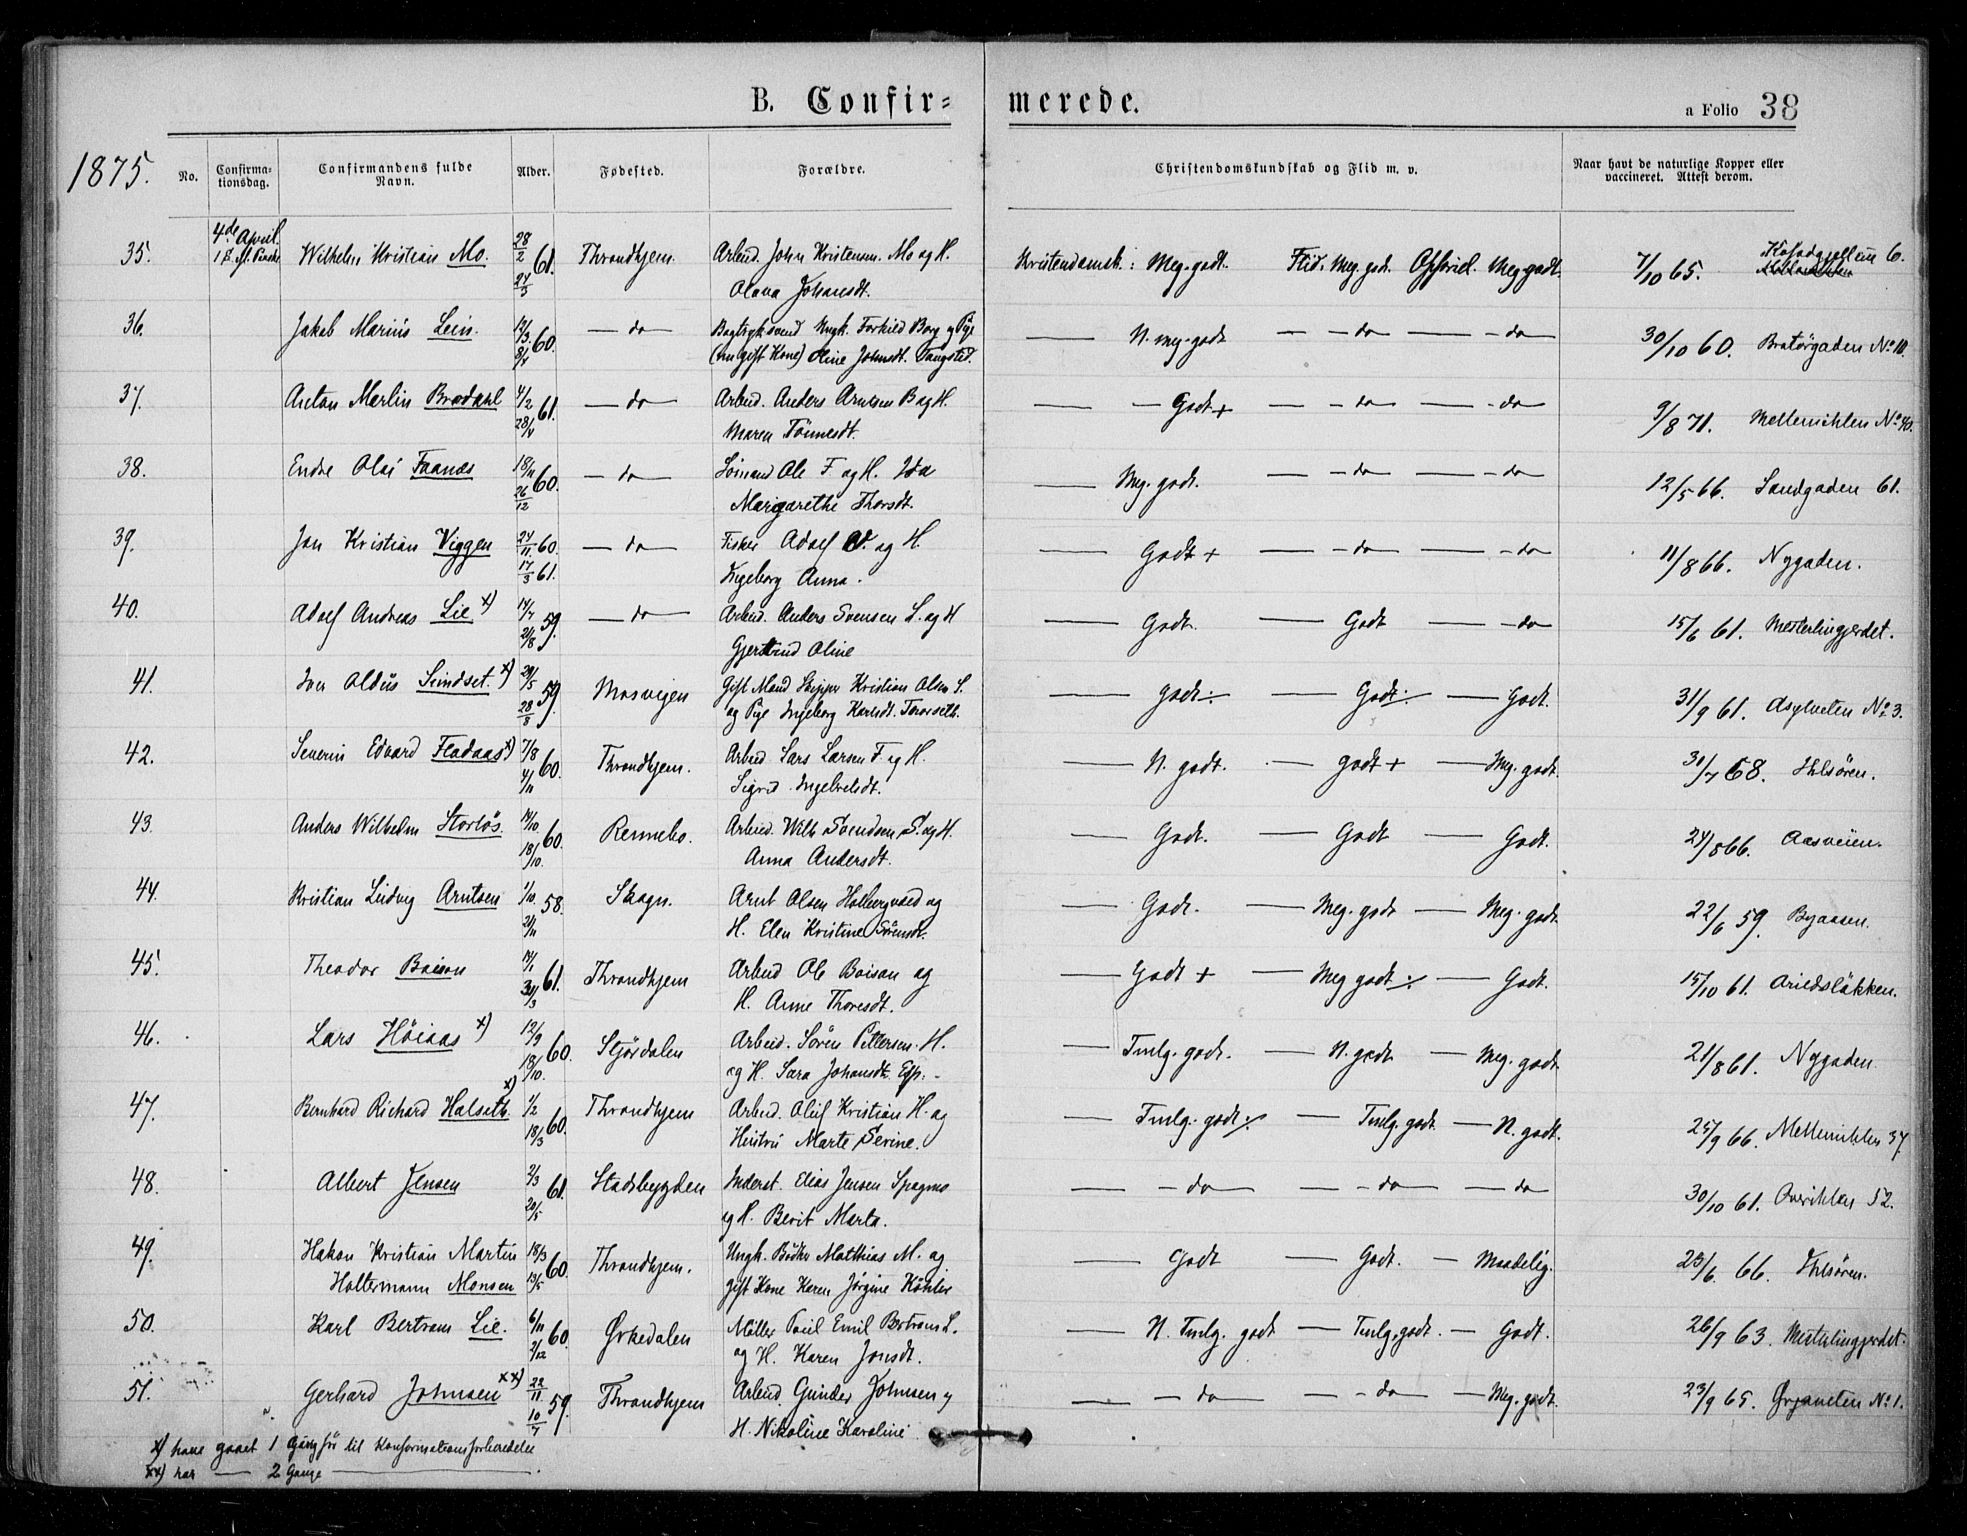 B. Confir= merede. a Folio 38
1875.
No. Confirma-tionsdag. Confirmandens fulde Navn. Alder. Fødested. Forældre. Christendomskundskab og Flid m. v. Naar havt de naturlige Kopper eller vaccineret. Attest derom.
4de April.
35. Wilhelm Kristian Mo. 28/2 61. Throndhjem. Arbeid. John Kristensen Mo og H. Kristendomsk: Meg. godt. Flid. Meg. godt. Opførsel. Meg godt. 7/10 65. 6.
Olava Johansdt.
36. Jakob Marius Lein. 60. — do Ungk. Torkild Borg og Pige — N. meg. godt — do — do 30/10 60. Bratørgaden No 10.
(nu gift Kone) Oline Johnsdt. Tangsted.
37. Anton Merlin Brodahl 4/2 61. 28/4 — do Arbeid. Anders Arntsen B og H. — Godt + — do — do 9/8 71. Mellemihlen No 40.
Maren Tönnesdt.
38. Endre Olai Faanæs 18/11 60. 26/12 — do Sömand Ole F. og H. Ida — Meg. godt. — do — do 12/5 66. Sandgaden 61.
Margarethe Thorsdt.
39. Jon Kristian Viggen 24/11 60. 17/3 61. — do Fisker Adolf V. og H. — Godt + — do — do 11/8 66. Nygaden.
Ingeborg Anna.
40. Adolf Andreas Lie x) 59. — do Arbeid. Anders Svensen L. og H — Godt. — Godt — do 15/6 61. Mesterlingjerdet.
Gjertrud Oline
41. Iver Oldus Sundset. x) 29/5 59. 28/8 Mosvigen Gift Mand Skipper Kristian Olsen S. — godt ÷ — Godt ÷ — Godt. 31/9 61. Asylveten No 3.
og Pige Ingeborg Karlsdt. Thorseth.
42. Severin Edvard Fladaas x) 7/8 60. 4/11 Throndhjem. Arbeid Lars Larsen F og H. — N. godt. — godt + — Meg. godt. 31/7 68. Ihlsøren.
Sigrid Ingebretsdt.
43. Anders Wilhelm Storløs. 14/10 60. 18/10. Rennebo. Arbeid. Wilh Svendsen S. og H. — Godt. — Godt — Godt. 24/8 66. Aasveien.
Anna Andersdt.
44. Kristian Ludvig Arntsen 1/10. 58. 21/11 Skogn. Arnt Olsen Holbergvald og — Godt. — Meg. godt — Meg. godt. 22/6 59. Byaasen.
H. Elen Kristine Sörensdt.
45. Theodor Boison 14/1 61. Throndhjem Arbeid Ole Boison og — Godt + — Meg godt ÷ — Godt. 15/10 61. Arildsløkken.
H. Anne Thoresdt.
46. Lars Höiaas x) 12/9 60. 18/10. Stjørdalen Arbeid. Sören Pettersen H. — Tmlg. godt. — N. godt — Meg. godt. 21/8 61. Nygaden.
og H. Sara Johansdt. Esp.
47. Bernhard Richard Halseth x) 1/2 60. 18/3 Throndhjem Arbeid. Oluf Kristian H. og — Tmlg. godt ÷ — Tmlg. godt. — N. godt. 25/9 66. Mellemihlen 37.
Hustru Marte Serine.
48. Albert Jensen 2/3 61. 20/5 Stadsbygden Inderst. Elias Jensen Spagmo — do — do — do 30/10 61. Overihlen 52.
og H. Berit Marta.
49. Hakon Kristian Martin 18/3 60. 13/5 Throndhjem. Ungk. Bödker Mathias M. og — Godt — Godt. — Maadelig. 23/6 66. Ihlsøren.
Holtermann Monsen gift Kone Karen Jörgine Köhler
50. Karl Bertram Lie. 6/11 60. 2/12 Ørkedalen Möller Paul Emil Bertram L. — N. Tmlg. godt — Tmlg. godt. — Godt. 26/9 63. Mesterlingjerdet.
og H. Karen Jonsdt.
51. Gerhard Johnsen xx) 22/11 59. 10/7 Throndhjem Arbeid Gunder Johnsen og — do — do — Meg. godt. 23/9 65. Ørjaveten No 1.
H. Nikoline Karoline
x) have gaaet 1 Gang för til Konfirmationsforberedelse
xx) har — 2 Gange —